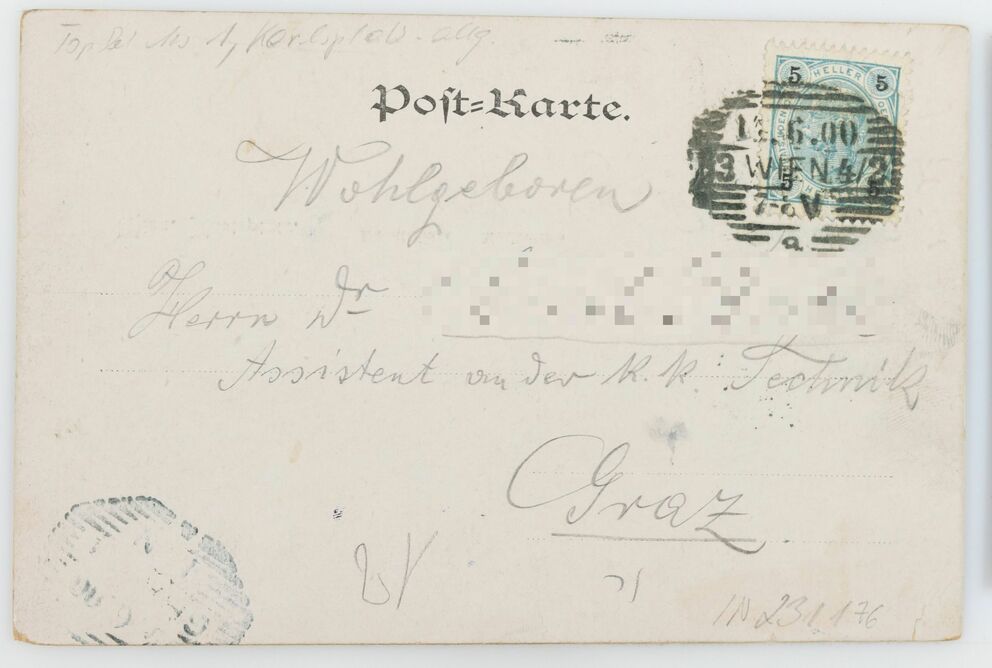 1, Karlsplatz - allg.
Post=Karte.
5 HELLER 5
.6.00
3 WIEN 4/2
5 5
7-8V
a
Wohlgeboren
Herrn Dr
Assistent an der k. k. Technik
Graz
IN 231176